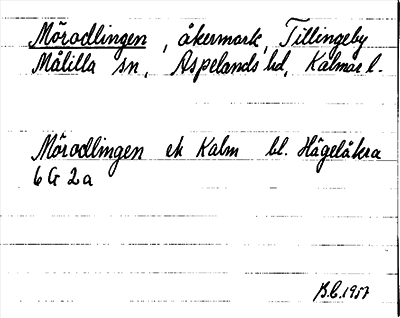 Mörodlingen, åkermark, Tillingeby
Målilla sn, Aspelands hd, Kalmar l.
Mörodlingen ek Kalm bl. Hägelåkra
6 G 2a
B.C. 1957